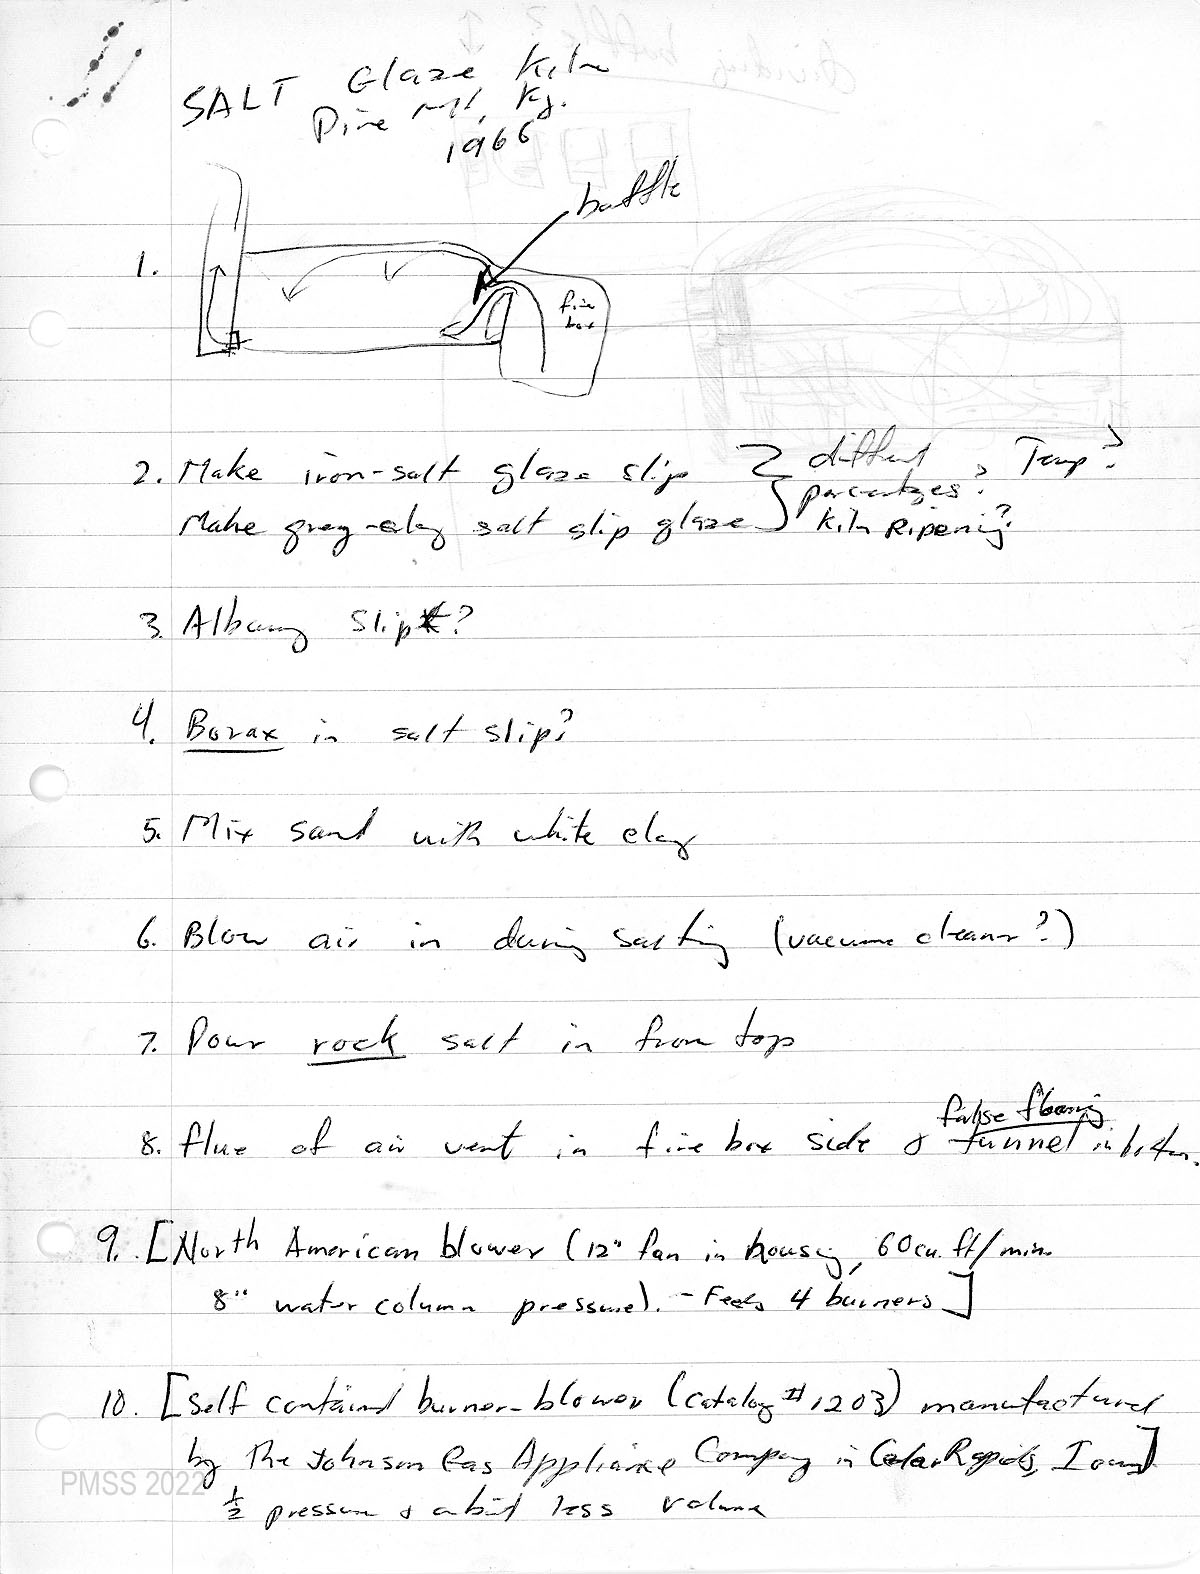 SALT Glaze Kiln
Pine Mt, Ky.
1966
baffle
1.
fire
box
2. Make iron-salt glaze slip } different percentages? Temp?
Make grey-clay salt slip glaze } Kiln Ripening?
3. Albany slip?
4. Borax in salt slip?
5. Mix sand with white clay
6. Blow air in during salting (vacuum cleaner?)
7. Pour rock salt in from top
false flooring
8. flue of air vent in fire box side & tunnel in bottom.
9. [North American blower (12" fan in housing, 60 cu. ft/min.
8" water column pressure). - Feeds 4 burners]
10. [Self contained burner-blower (catalog # 1203) manufactured
by The Johnson Gas Appliance Company in Cedar Rapids, Iowa]
½ pressure & a bit less volume
PMSS 2022